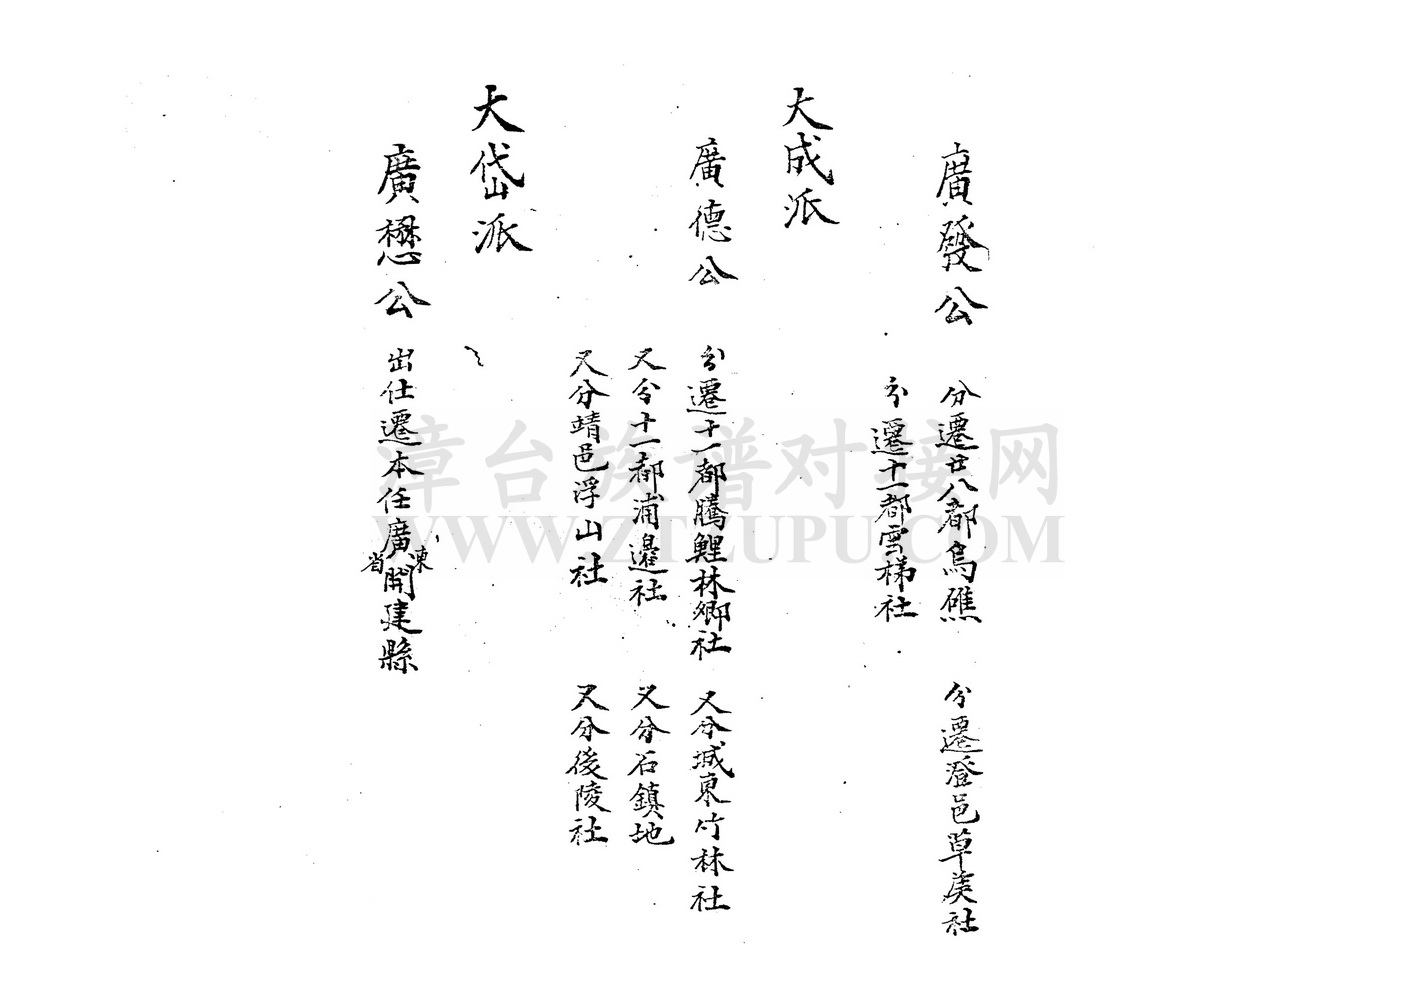 廣發公 分遷廿八都烏礁 分遷澄邑草坂社
分遷十一都雲梯社
大成派
廣德公 分遷十一都騰鯉林鄉社 又分城東竹林社
又分十一都浦邊社 又分石鎮地
又分靖邑浮山社 又分後陵社
大岱派
廣懋公 出仕遷本任廣東省開建縣
漳台族谱对接网
WWW.ZTZUPU.COM